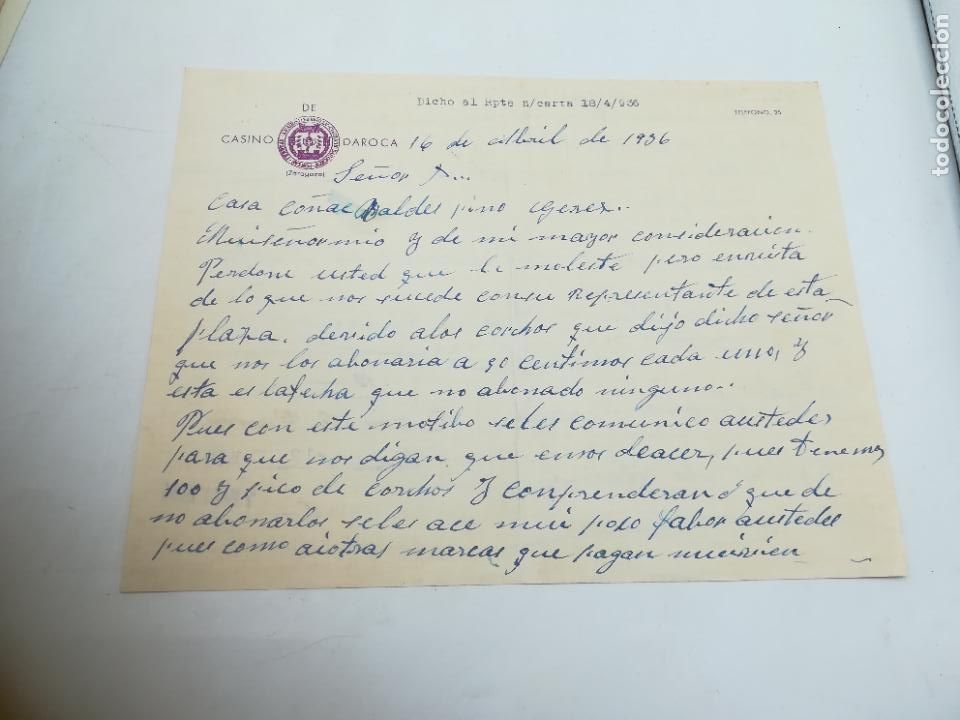 Dicho al Rpte n/carta 18/4/936
TELEFONO, 25
CASINO DE DAROCA 16 de Abril de 1936
(Zaragoza)
Señor D...
Casa Coñac Baldes pino Gerez..
Mui señor mio y de mi mayor consideracion.
Perdone usted que le moleste pero envista
de loque nos sucede consu Representante de esta
plaza. devido alos corchos que dijo dicho señor
que nos los abonaria a 90 centimos cada uno, y
esta es lafecha que no abonado ninguno..
Pues con este motibo seles comunico austedes
para que nos digan que emos deacer, pues tenemos
100 y pico de corchos y comprenderan que de
no abonarlos seles ace mui poco fabor austedes
pues como aiotras marcas que pagan muivien
todocoleccion
todocoleccion.net